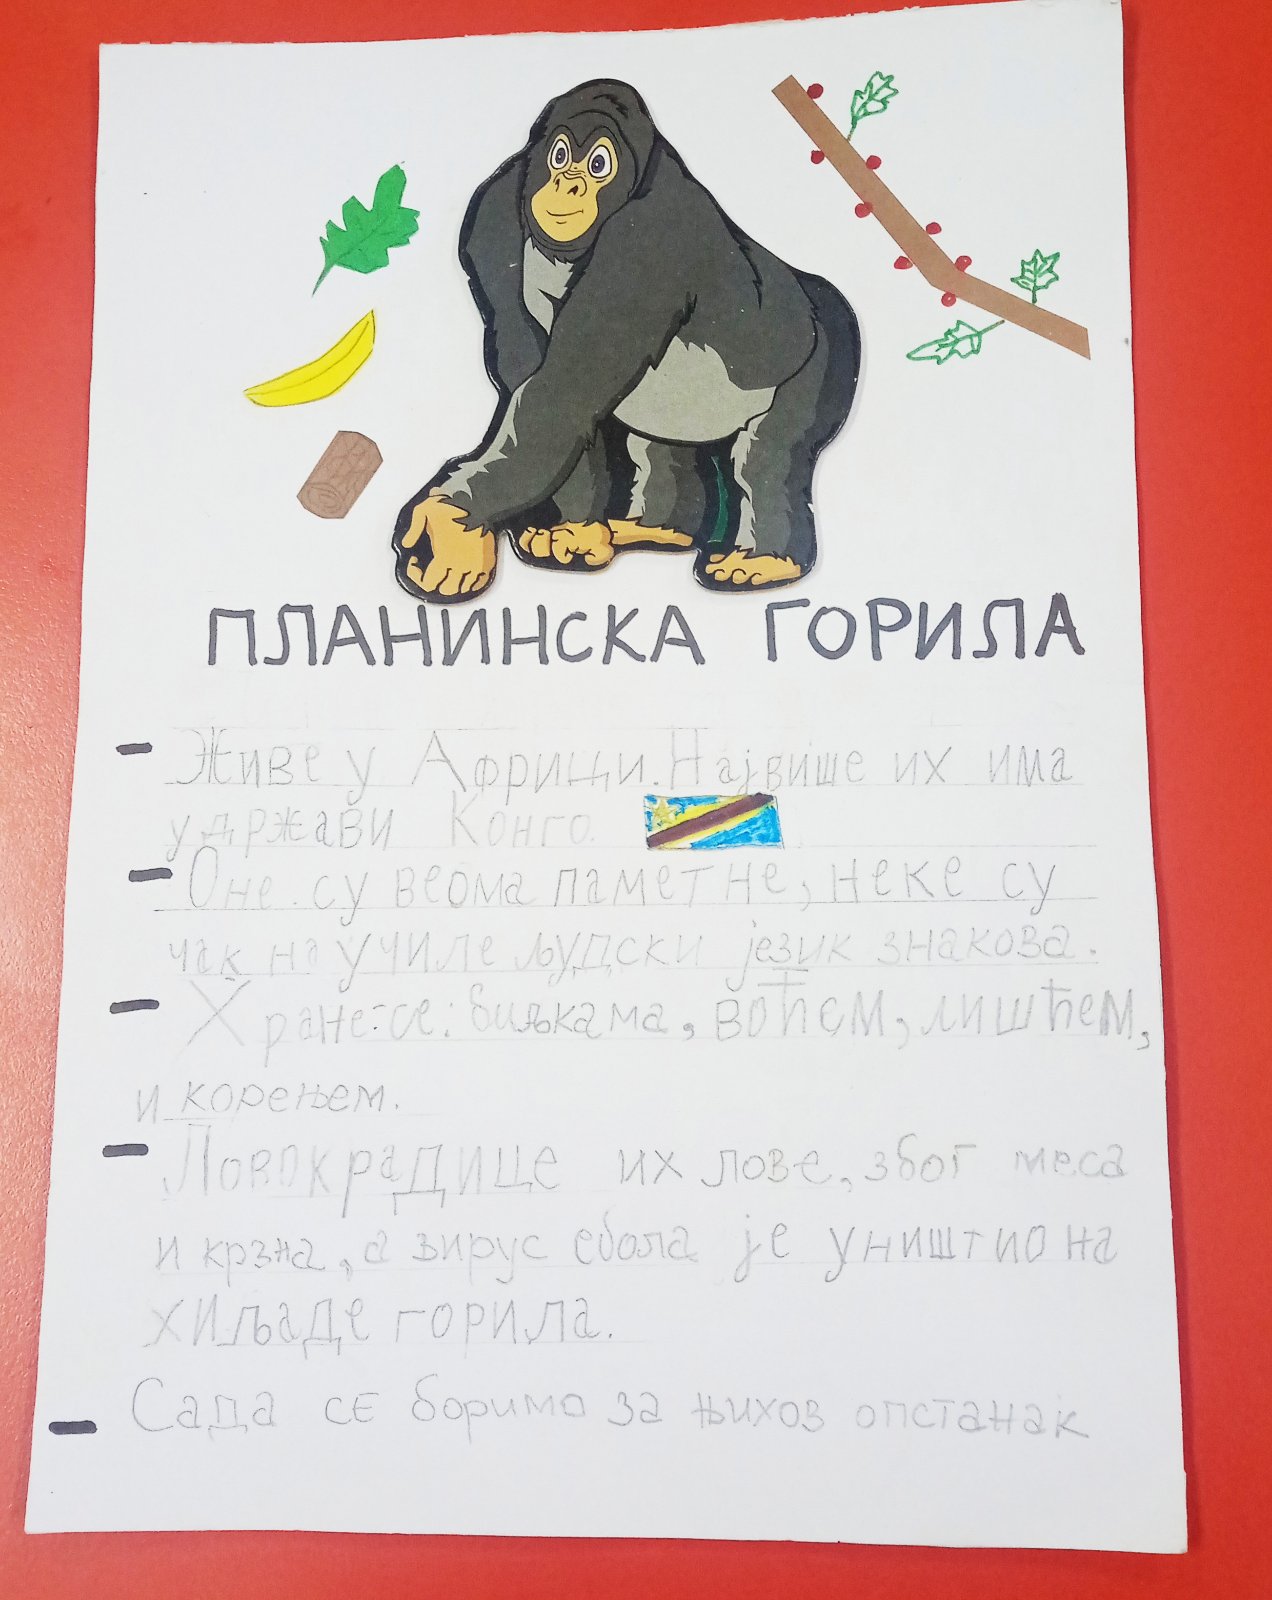 ПЛАНИНСКА ГОРИЛА
- Живе у Африци. Највише их има
у држави Конго.
- Оне су веома паметне, неке су
чак научиле људски језик знакова.
- Хране се: биљкама, воћем, лишћем,
и корењем.
- Ловокрадице их лове, због меса
и крзна, а вирус ебола је уништио на
хиљаде горила.
- Сада се боримо за њихов опстанак